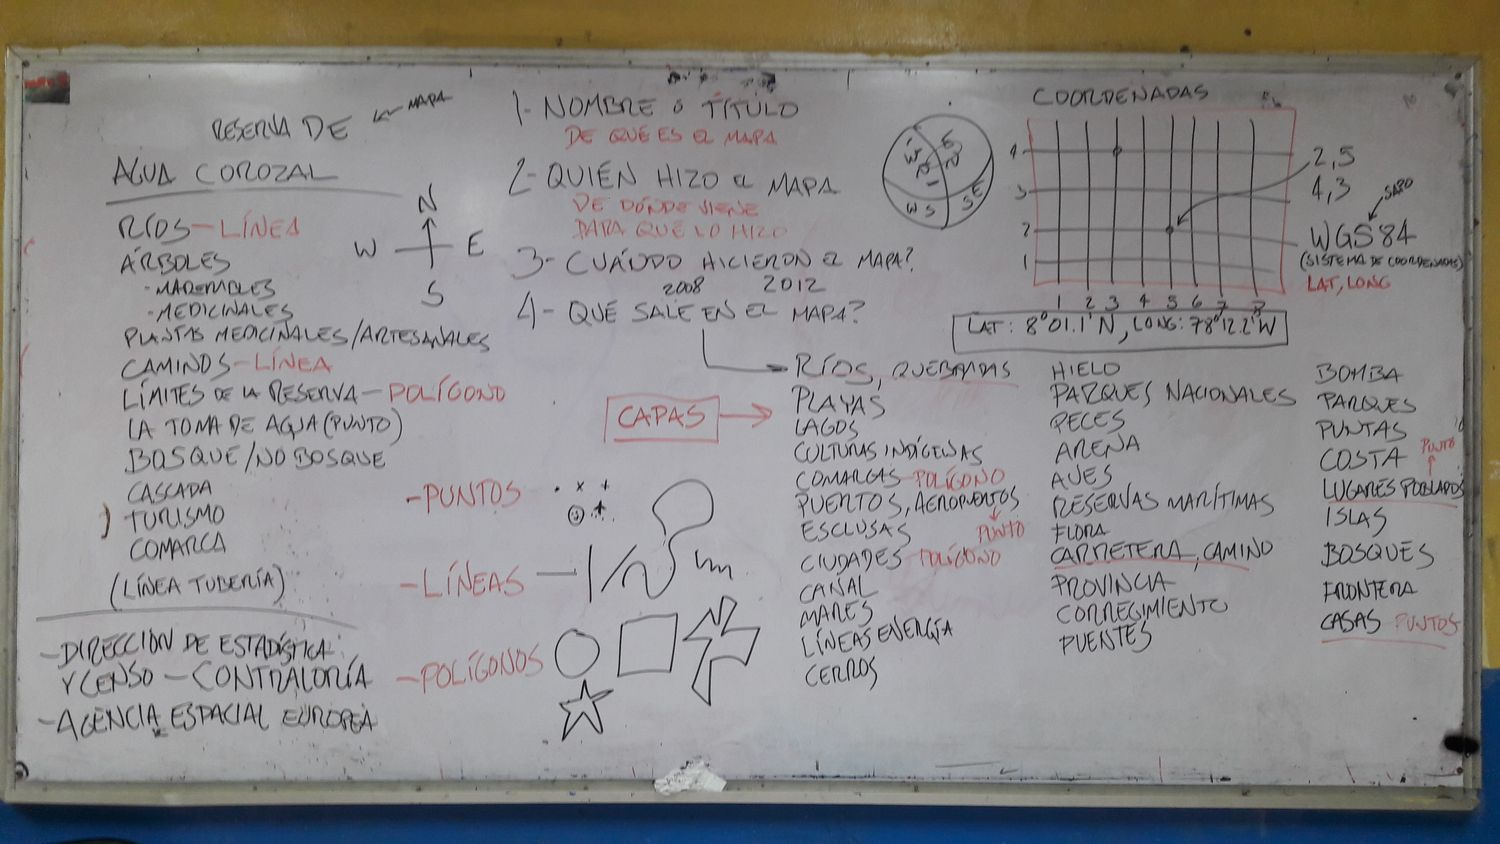 RESERVA DE ← MAPA
AGUA COROZAL
RÍOS - LÍNEA
ÁRBOLES
- MADERABLES
- MEDICINALES
PLANTAS MEDICINALES/ARTESANALES
CAMINOS - LÍNEA
LÍMITES DE LA RESERVA - POLÍGONO
LA TOMA DE AGUA (PUNTO)
BOSQUE/NO BOSQUE
CASCADA
TURISMO
COMARCA
(LÍNEA TUBERÍA)
- DIRECCIÓN DE ESTADÍSTICA
Y CENSO - CONTRALORÍA
- AGENCIA ESPACIAL EUROPEA
N
W E
S
1- NOMBRE o TÍTULO
DE QUÉ ES EL MAPA
2- QUIÉN HIZO EL MAPA
DE DÓNDE VIENE
PARA QUE LO HIZO
3- CUÁNDO HICIERON EL MAPA?
2008 2012
4- QUÉ SALE EN EL MAPA?
CAPAS
- PUNTOS
- LÍNEAS
- POLÍGONOS
RÍOS, QUEBRADAS
PLAYAS
LAGOS
CULTURAS INDÍGENAS
COMARCAS - POLÍGONO
PUERTOS, AEROPUERTOS
PUNTO
ESCLUSAS
CIUDADES - POLÍGONO
CANAL
MARES
LÍNEAS ENERGÍA
CERROS
HIELO
PARQUES NACIONALES
PECES
ARENA
AVES
RESERVAS MARÍTIMAS
FLORA
CARRETERA, CAMINO
PROVINCIA
CORREGIMIENTO
PUENTES
BOMBA
PARQUES
PUNTAS
COSTA
PUNTO
LUGARES POBLADOS
ISLAS
BOSQUES
FRONTERA
CASAS PUNTOS
W S
S E
COORDENADAS
4
3
2
1
1 2 3 4 5 6 7 8
2,5
4,3
SAPO
WGS84
(SISTEMA DE COORDENADAS)
LAT, LONG
LAT: 8°01.1' N, LONG: 78°12.2' W